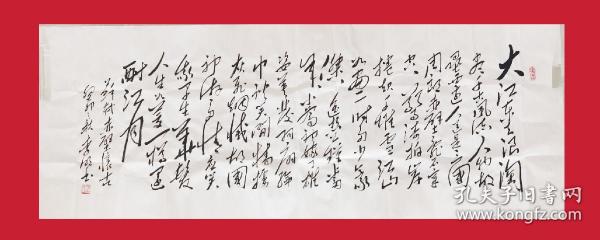 大江东去浪淘
尽千古风流人物故
垒西边人道是三国
周郎赤壁乱石穿
空惊涛拍岸
卷起千堆雪江山
如画一时多少豪
杰遥想公瑾当
年小乔初嫁了雄
姿英发羽扇纶
巾谈笑间樯橹
灰飞烟灭故国
神游多情应笑
我早生华发
人生如梦一樽还
酹江月
苏轼赤壁怀古
孔夫子旧书网
www.kongfz.com